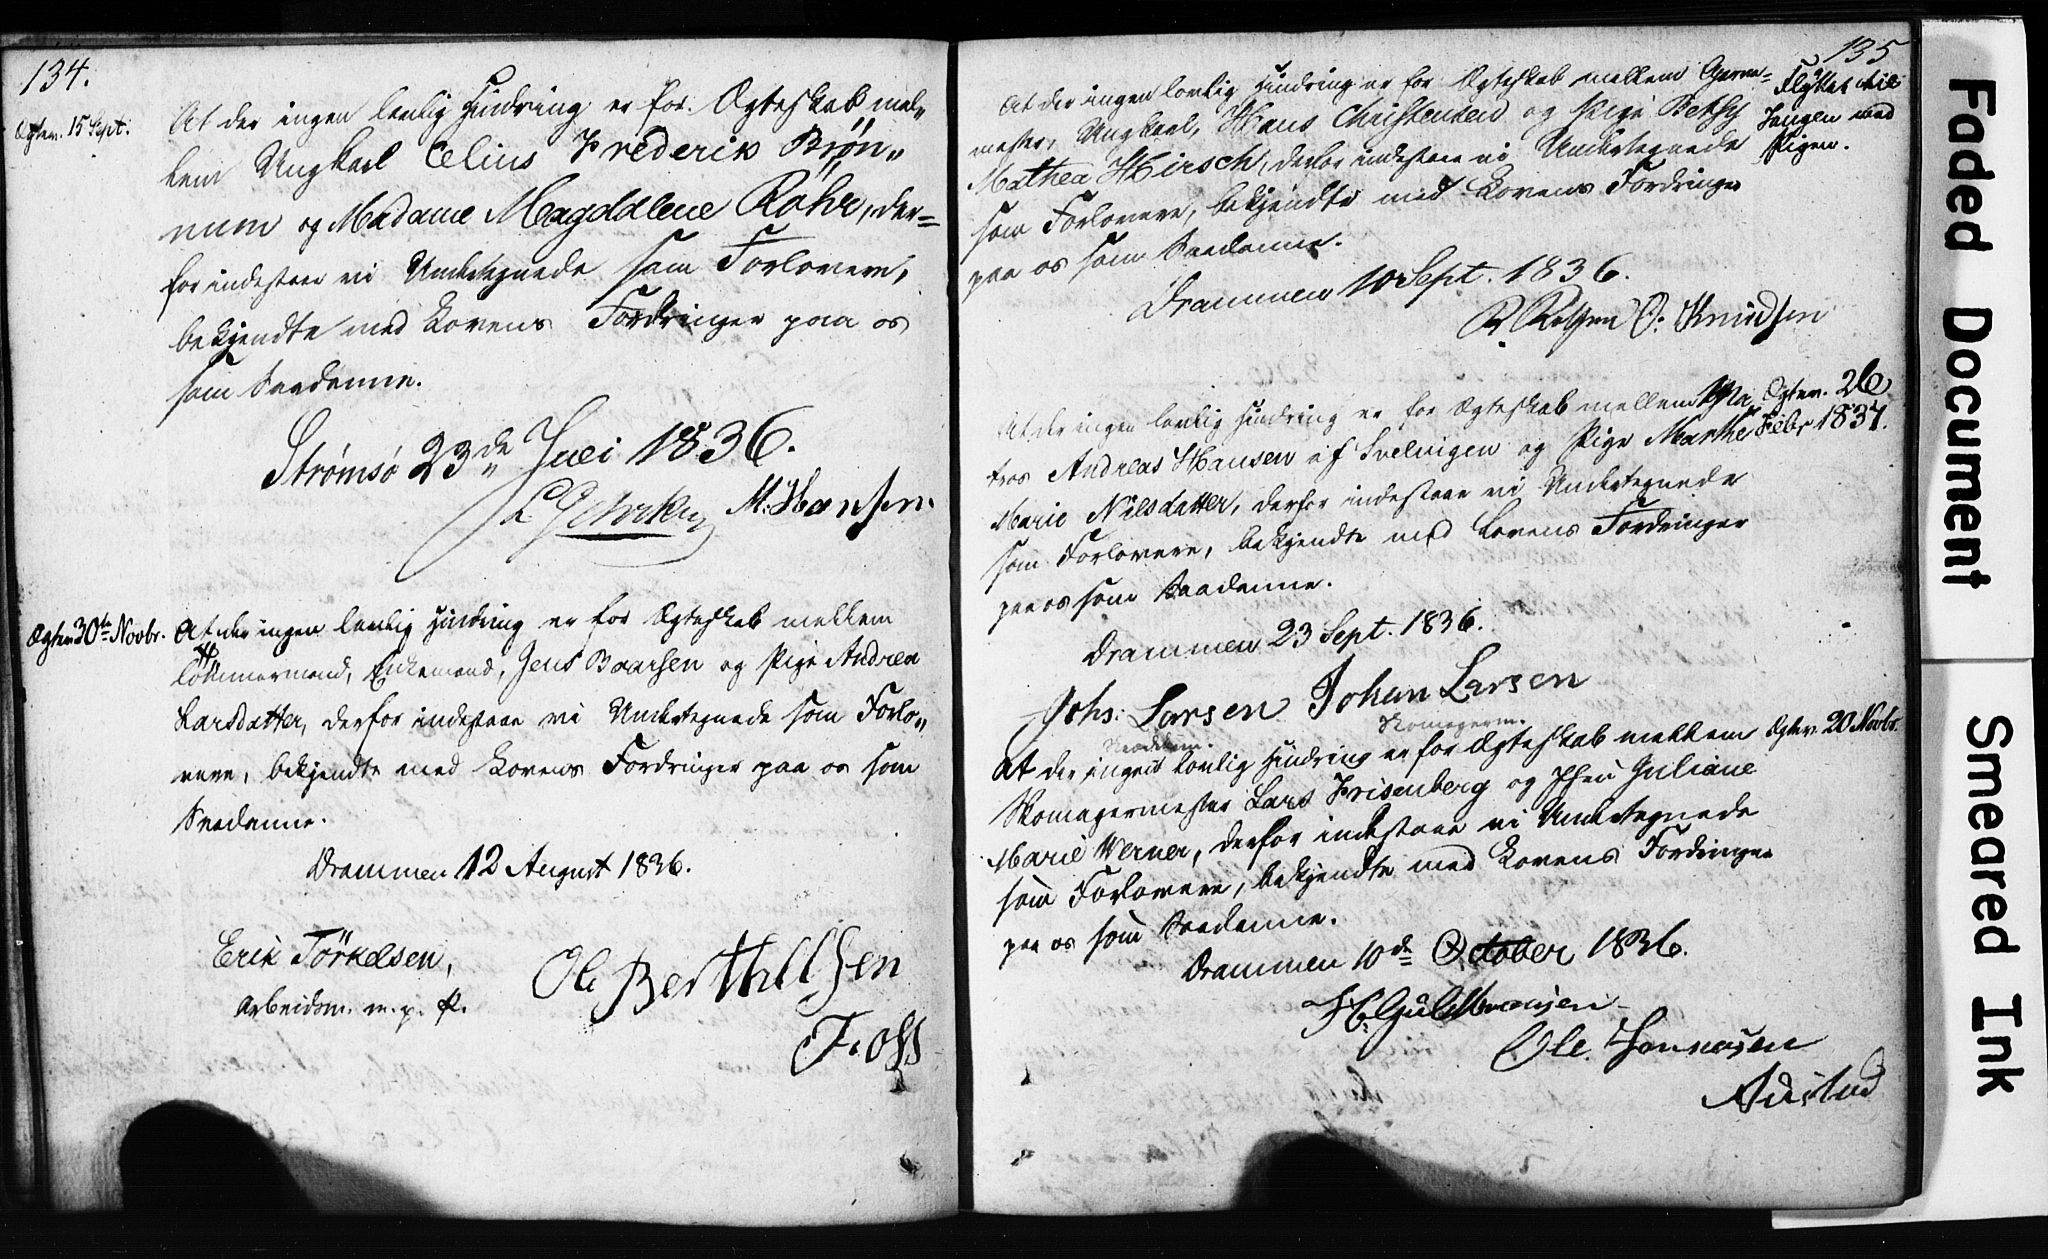 134.
Ægtev. 15 Sept.
At der ingen lovlig Hindring er for Ægteskab mel„
lem Ungkarl Celius Frederik Brön„
num og Madame Magdalene Röhr, der=
for indestaae vi Undertegnede som Forlovere,
bekjendte med Lovens Fordringer paa os
som Saadanne.
Strømsø 23de Juli 1836.
M. Hansen.
Ægtev. 30te Novbr.
At der ingen lovlig Hindring er for Ægteskab mellem
Tömmermand, Enkemand, Jens Baarsen og Pige Andrea
Larsdatter, derfor indestaae vi Undertegnede som Forlo„
vere, bekjendte med Lovens Fordringer paa os som
Saadanne.
Drammen 12 August 1836.
Erik Törkelsen,
Arbeidsm. m. p. P.
Ole Berthillsen
Foss
135
At der ingen lovlig Hindring er for Ægteskab mellem Garve=
mester, Ungkarl, Hans Christensen og Pige Bethsy
Mathea Hirsch, derfor indestaae vi Undertegnede
som Forlovere, bekjendte med Lovens Fordringer
paa os som Saadanne.
Flyttet til
Tangen med
Pigen.
Drammen 10 Sept. 1836.
O: Knudsen
At der ingen lovlig Hindring er for Ægteskab mellem Ma
tros Andreas Hansen af Svelvigen og Pige Marthe
Marie Nilsdatter, derfor indestaae vi Undertegnede
som Forlovere, bekjendte med Lovens Fordringer
paa os som Saadanne.
Ægtev. 26
Febr 1837.
Drammen 23 Sept. 1836.
Johs: Larsen Johan Larsen
Skomagerm.
At der ingen lovlig Hindring er for Ægteskab mellem
Skomagermester Lars Frisenberg og Pige Juliane
Marie Werner, derfor indestaae vi Undertegnede
som Forlovere, bekjendte med Lovens Fordringer
paa os som Saadanne.
Ægtev. 20 Novbr.
Drammen 10de October 1836.
H. Gulbransen
Ole
Faded Document
Smeared Ink